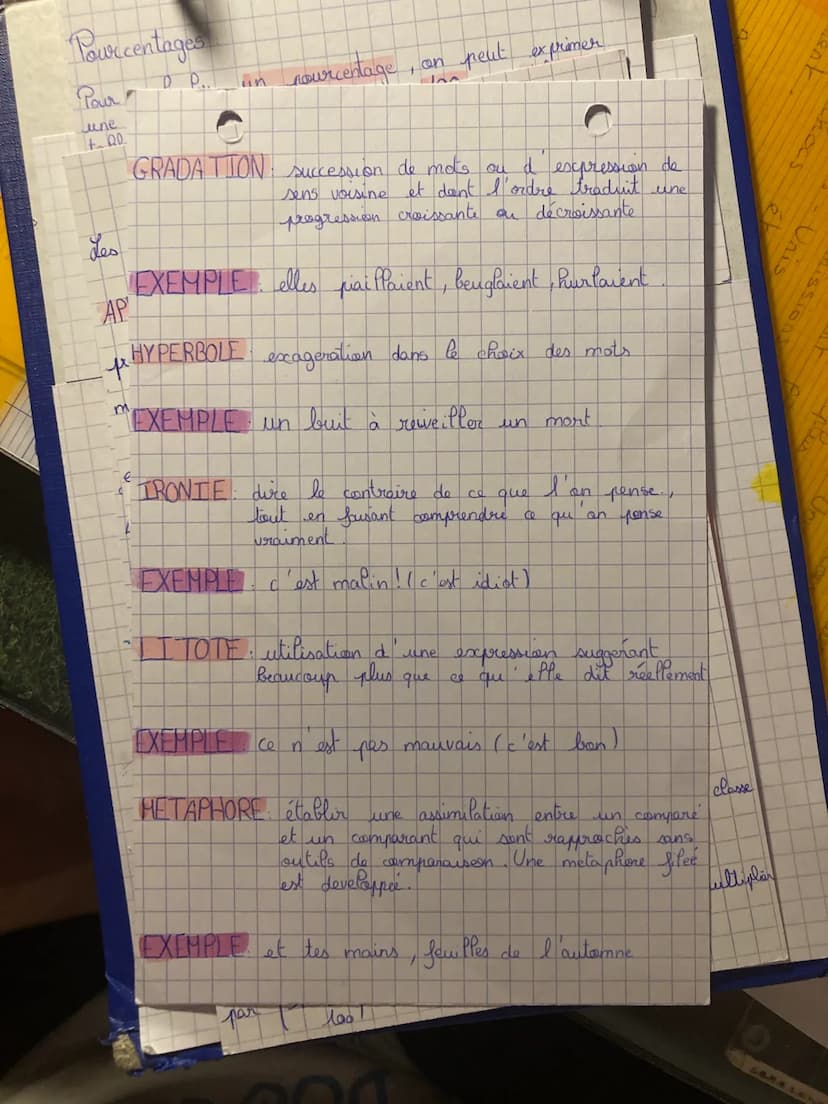 Pourcentages
Pour
un pourcentage, on peut exprimer
une
Les
AP
GRADATION : succession de mots ou d'expression de
sens voisine et dont l'ordre traduit une
progression croissante ou décroissante
EXEMPLE : elles piaillaient, beuglaient, hurlaient.
HYPERBOLE : exageration dans le choix des mots
EXEMPLE : un buit à reiveiller un mort
IRONIE : dire le contraire de ce que l'on pense,
tout en faisant comprendre ce qu'on pense
vraiment.
EXEMPLE : c'est malin! (c'est idiot)
LITOTE : utilisation d'une expression suggérant
beaucoup plus que ce qu'elle dit réellement
EXEMPLE : ce n'est pas mauvais (c'est bon)
METAPHORE : établir une assimilation entre un comparé
et un comparant qui sont rapprochés sans
outils de comparaiseon. Une metaphore filée
est developpée.
EXEMPLE : et tes mains, feuilles de l'automne
classe
ultiplier
par
100